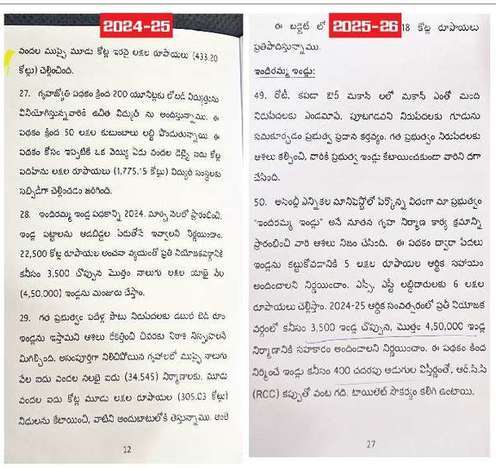 2024-25
వందల ముప్పై మూడు కోట్ల ఇరవై లక్షల రూపాయలు (433.20
కోట్లు) చెల్లించింది.
27. గృహజ్యోతి పథకం కింద 200 యూనిట్లకు లోబడి విద్యుత్తును
వినియోగిస్తున్నవారికి ఉచిత విద్యుత్ ను అందుతున్నాము. ఈ
పథకం కింద 50 లక్షల కుటుంబాలు లబ్ధి పొందుతున్నాయి ఈ
పథకం కోసం ఇప్పటికే ఒక వెయ్యి ఏడు వందల డెబ్బై ఐదు కోట్ల
పదిహేను లక్షల రూపాయలు (1,775.15 కోట్లు) విద్యుత్ సంస్థలకు
సబ్సిడీగా చెల్లించడం జరిగింది.
28. ఇందిరమ్మ ఇండ్ల పథకాన్ని 2024, మార్చి నెలలో ప్రారంభించి,
ఇండ్ల పట్టాలను ఆడబిడ్డల పేరుతోనే ఇవ్వాలని నిర్ణయించాం.
22,500 కోట్ల రూపాయల అంచనా వ్యయంతో ప్రతి నియోజకవర్గానికి
కనీసం 3,500 చొప్పున మొత్తం నాలుగు లక్షల యాభై వేల
(4,50,000) ఇండ్లను మంజూరు చేస్తాం.
29. గత ప్రభుత్వం పదేళ్ల పాటు నిరుపేదలకు డబుల్ బెడ్ రూం
ఇండ్లను ఇస్తామని ఆశలు రేకెత్తించి చివరకు నిరాశ నిస్పృహలనే
మిగిల్చింది. అసంపూర్తిగా నిలిచిపోయిన గృహాలలో ముప్పై నాలుగు
వేల ఐదు వందల నలభై ఐదు (34,545) నిర్మాణాలకు, మూడు
వందల ఐదు కోట్ల మూడు లక్షల రూపాయల (305.03 కోట్లు)
నిధులను కేటాయించి, వాటిని అందుబాటులోకి తెస్తున్నాము. అంతే
12
2025-26
ఈ బడ్జెట్ లో 18 కోట్ల రూపాయలు
ప్రతిపాదిస్తున్నాము.
ఇందిరమ్మ ఇండ్లు:
49. రోటీ, కపడా ఔర్ మకాన్ లలో మకాన్ ఎంతో మంది
నిరుపేదలకు ఎండమావే. పూటగడవని నిరుపేదలకు గూడును
సమకూర్చడం ప్రభుత్వ ప్రధాన కర్తవ్యం. గత ప్రభుత్వం నిరుపేదలకు
ఆశలు కల్పించి, వారికి ప్రభుత్వ ఇండ్లు కేటాయించకుండా వారిని దగా
చేసింది.
50. అసెంబ్లీ ఎన్నికల మానిఫెస్టోలో పేర్కొన్న విధంగా మా ప్రభుత్వం
"ఇందిరమ్మ ఇండ్లు" అనే నూతన గృహ నిర్మాణ కార్యక్రమాన్ని
ప్రారంభించి వారి ఆశలు నిజం చేసింది. ఈ పథకం ద్వారా పేదలు
ఇండ్లను కట్టుకోవడానికి 5 లక్షల రూపాయల ఆర్థిక సహాయం
అందించాలని నిర్ణయించాం. ఎస్సీ, ఎస్టీ లబ్ధిదారులకు 6 లక్షల
రూపాయలు చెల్లిస్తాం. 2024-25 ఆర్థిక సంవత్సరంలో ప్రతీ నియోజక
వర్గంలో కనీసం 3,500 ఇండ్ల చొప్పున, మొత్తం 4,50,000 ఇండ్ల
నిర్మాణానికి సహకారం అందించాలని నిర్ణయించాం. ఈ పథకం కింద
నిర్మించే ఇండ్లు కనీసం 400 చదరపు అడుగుల విస్తీర్ణంతో, ఆర్.సి.సి
(RCC) కప్పుతో వంట గది, టాయిలెట్ సౌకర్యం కలిగి ఉంటాయి.
27